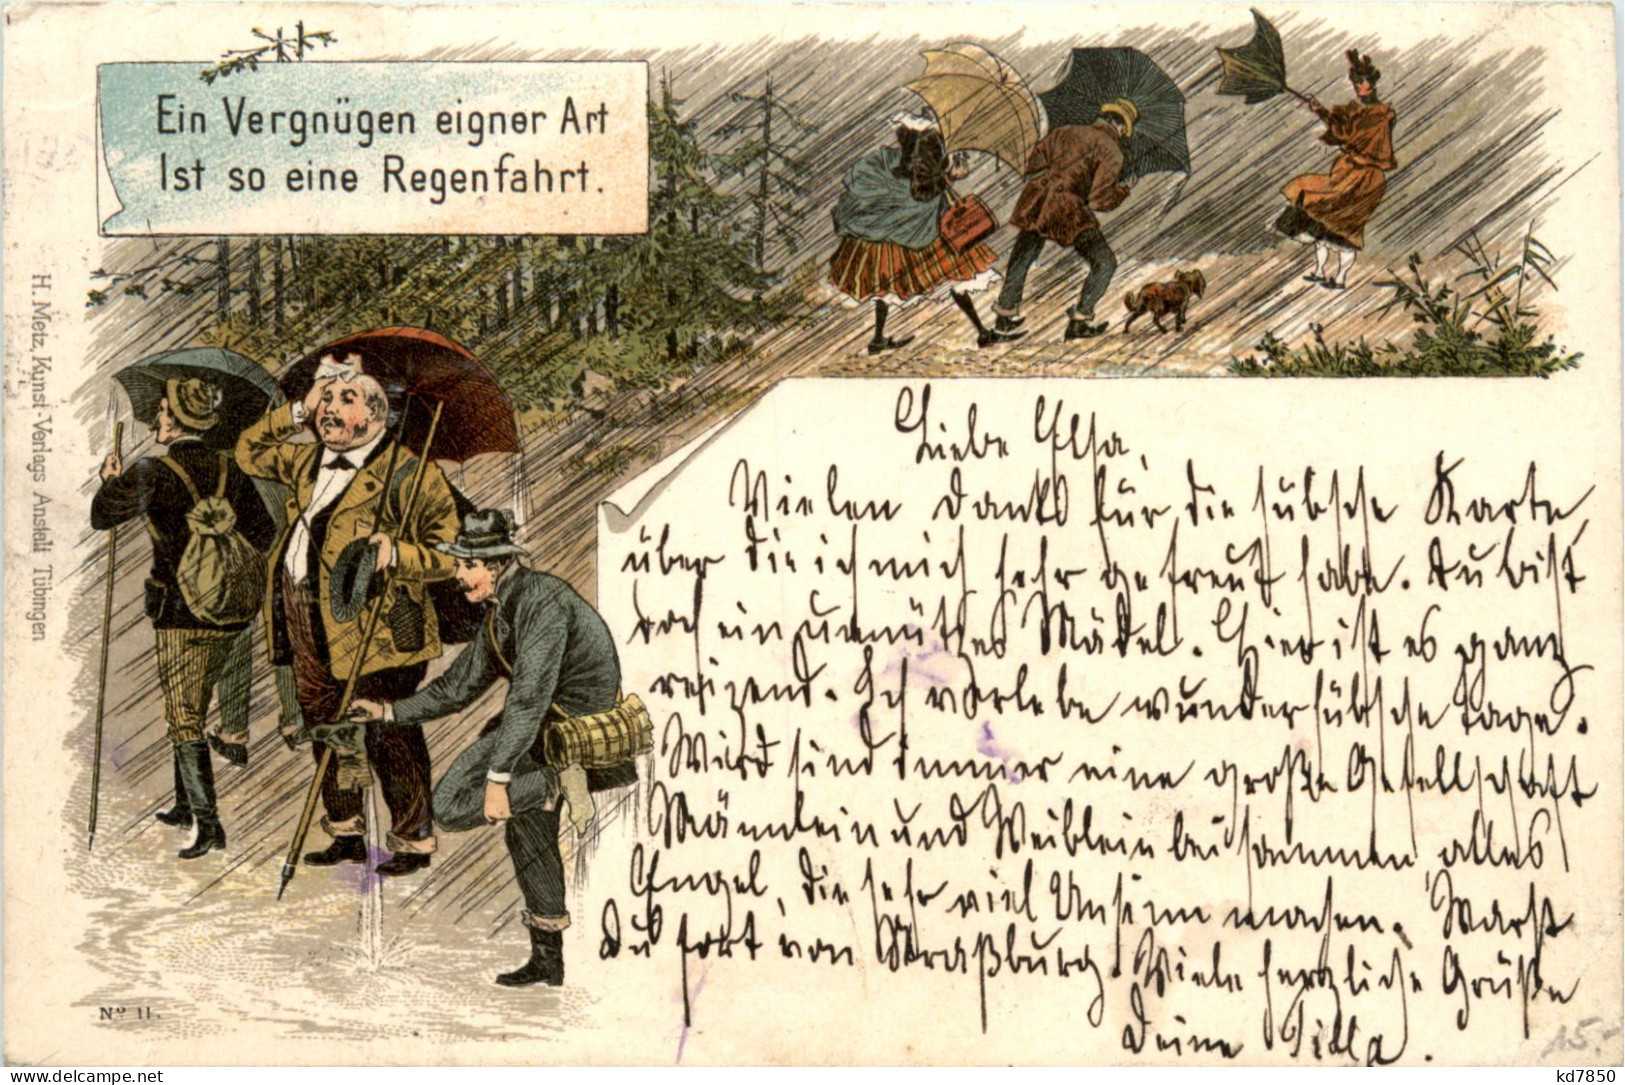 Ein Vergnügen eigner Art
Ist so eine Regenfahrt.
H. Metz, Kunst-Verlags Anstalt Tübingen
Liebe Elsa,
Vielen Dank für die hübsche Karte,
über die ich mich sehr gefreut habe. Du bist
doch ein Mädel. Hier ist es ganz
reizend. Ich verlebe wunderhübsche Tage.
Wir sind immer eine große Gesellschaft
Männlein und Weiblein beisammen, alles
Engel, die sehr viel Unsinn machen. Warst
Du fort von Straßburg. Viele herzliche Grüße
Deine Tilla.
No 11.
15.-
kd7850